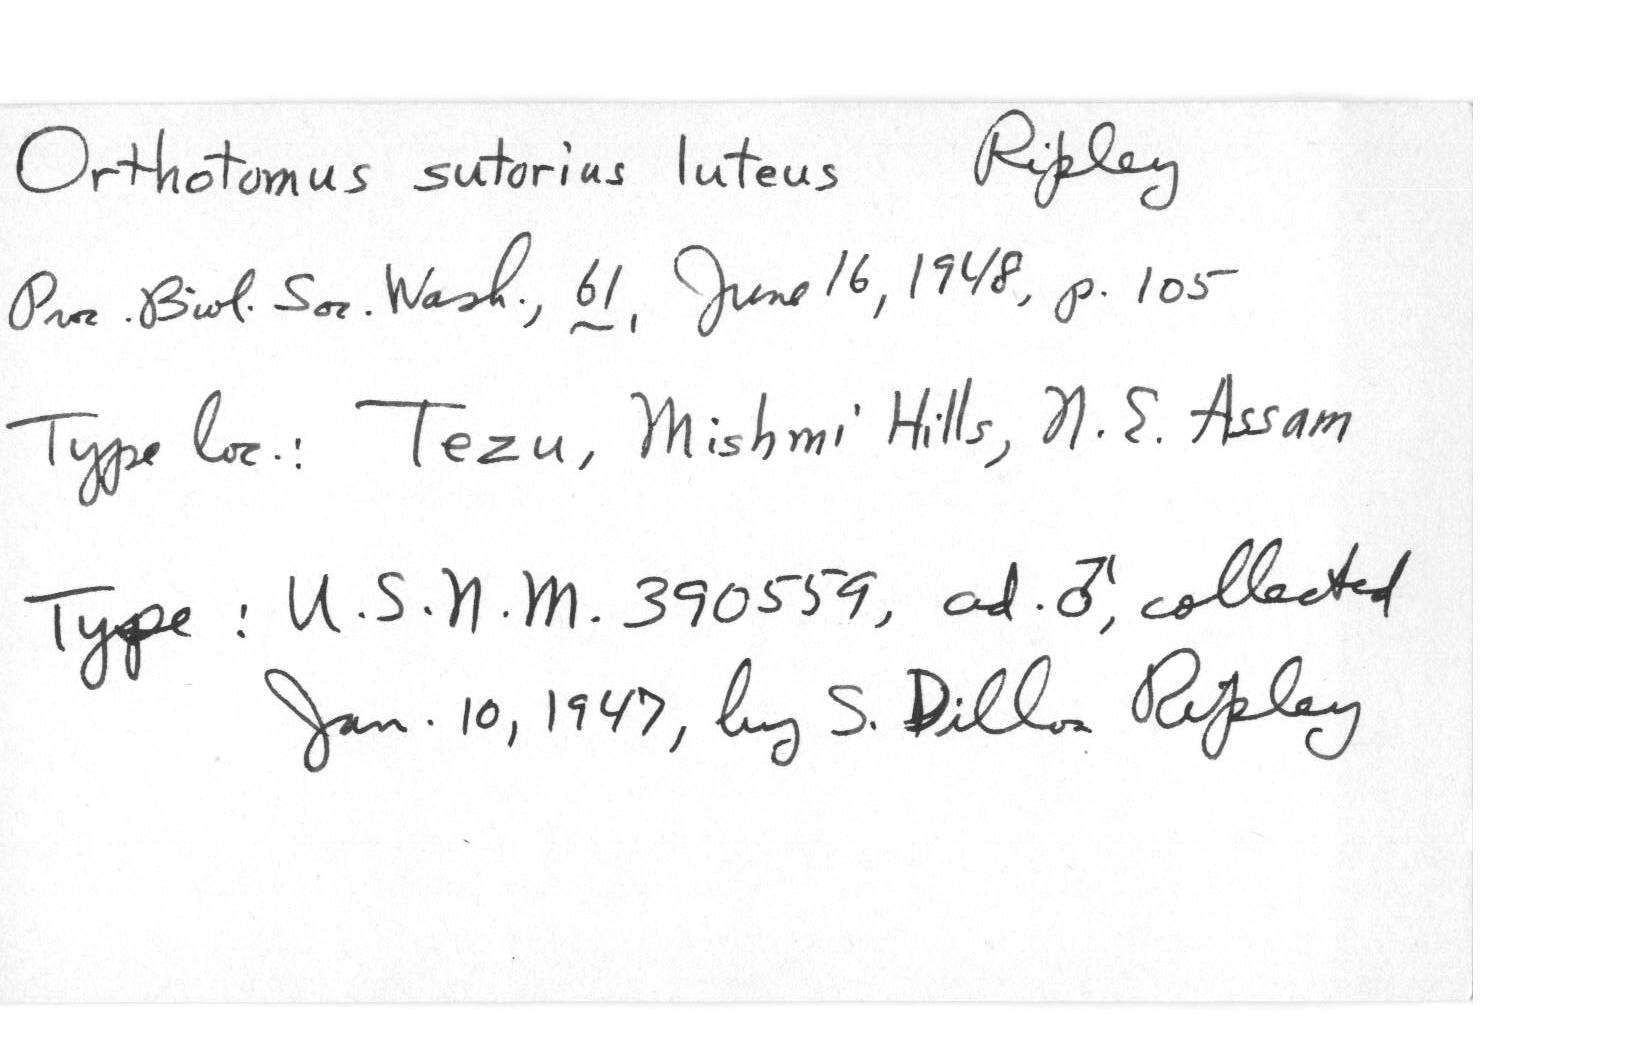 Orthotomus sutorius luteus Ripley
Proc. Biol. Soc. Wash., 61, June 16, 1948, p. 105
Type loc.: Tezu, Mishmi Hills, N.E. Assam
Type: U.S.N.M. 390559, ad. ♂, collected
Jan. 10, 1947, by S. Dillon Ripley